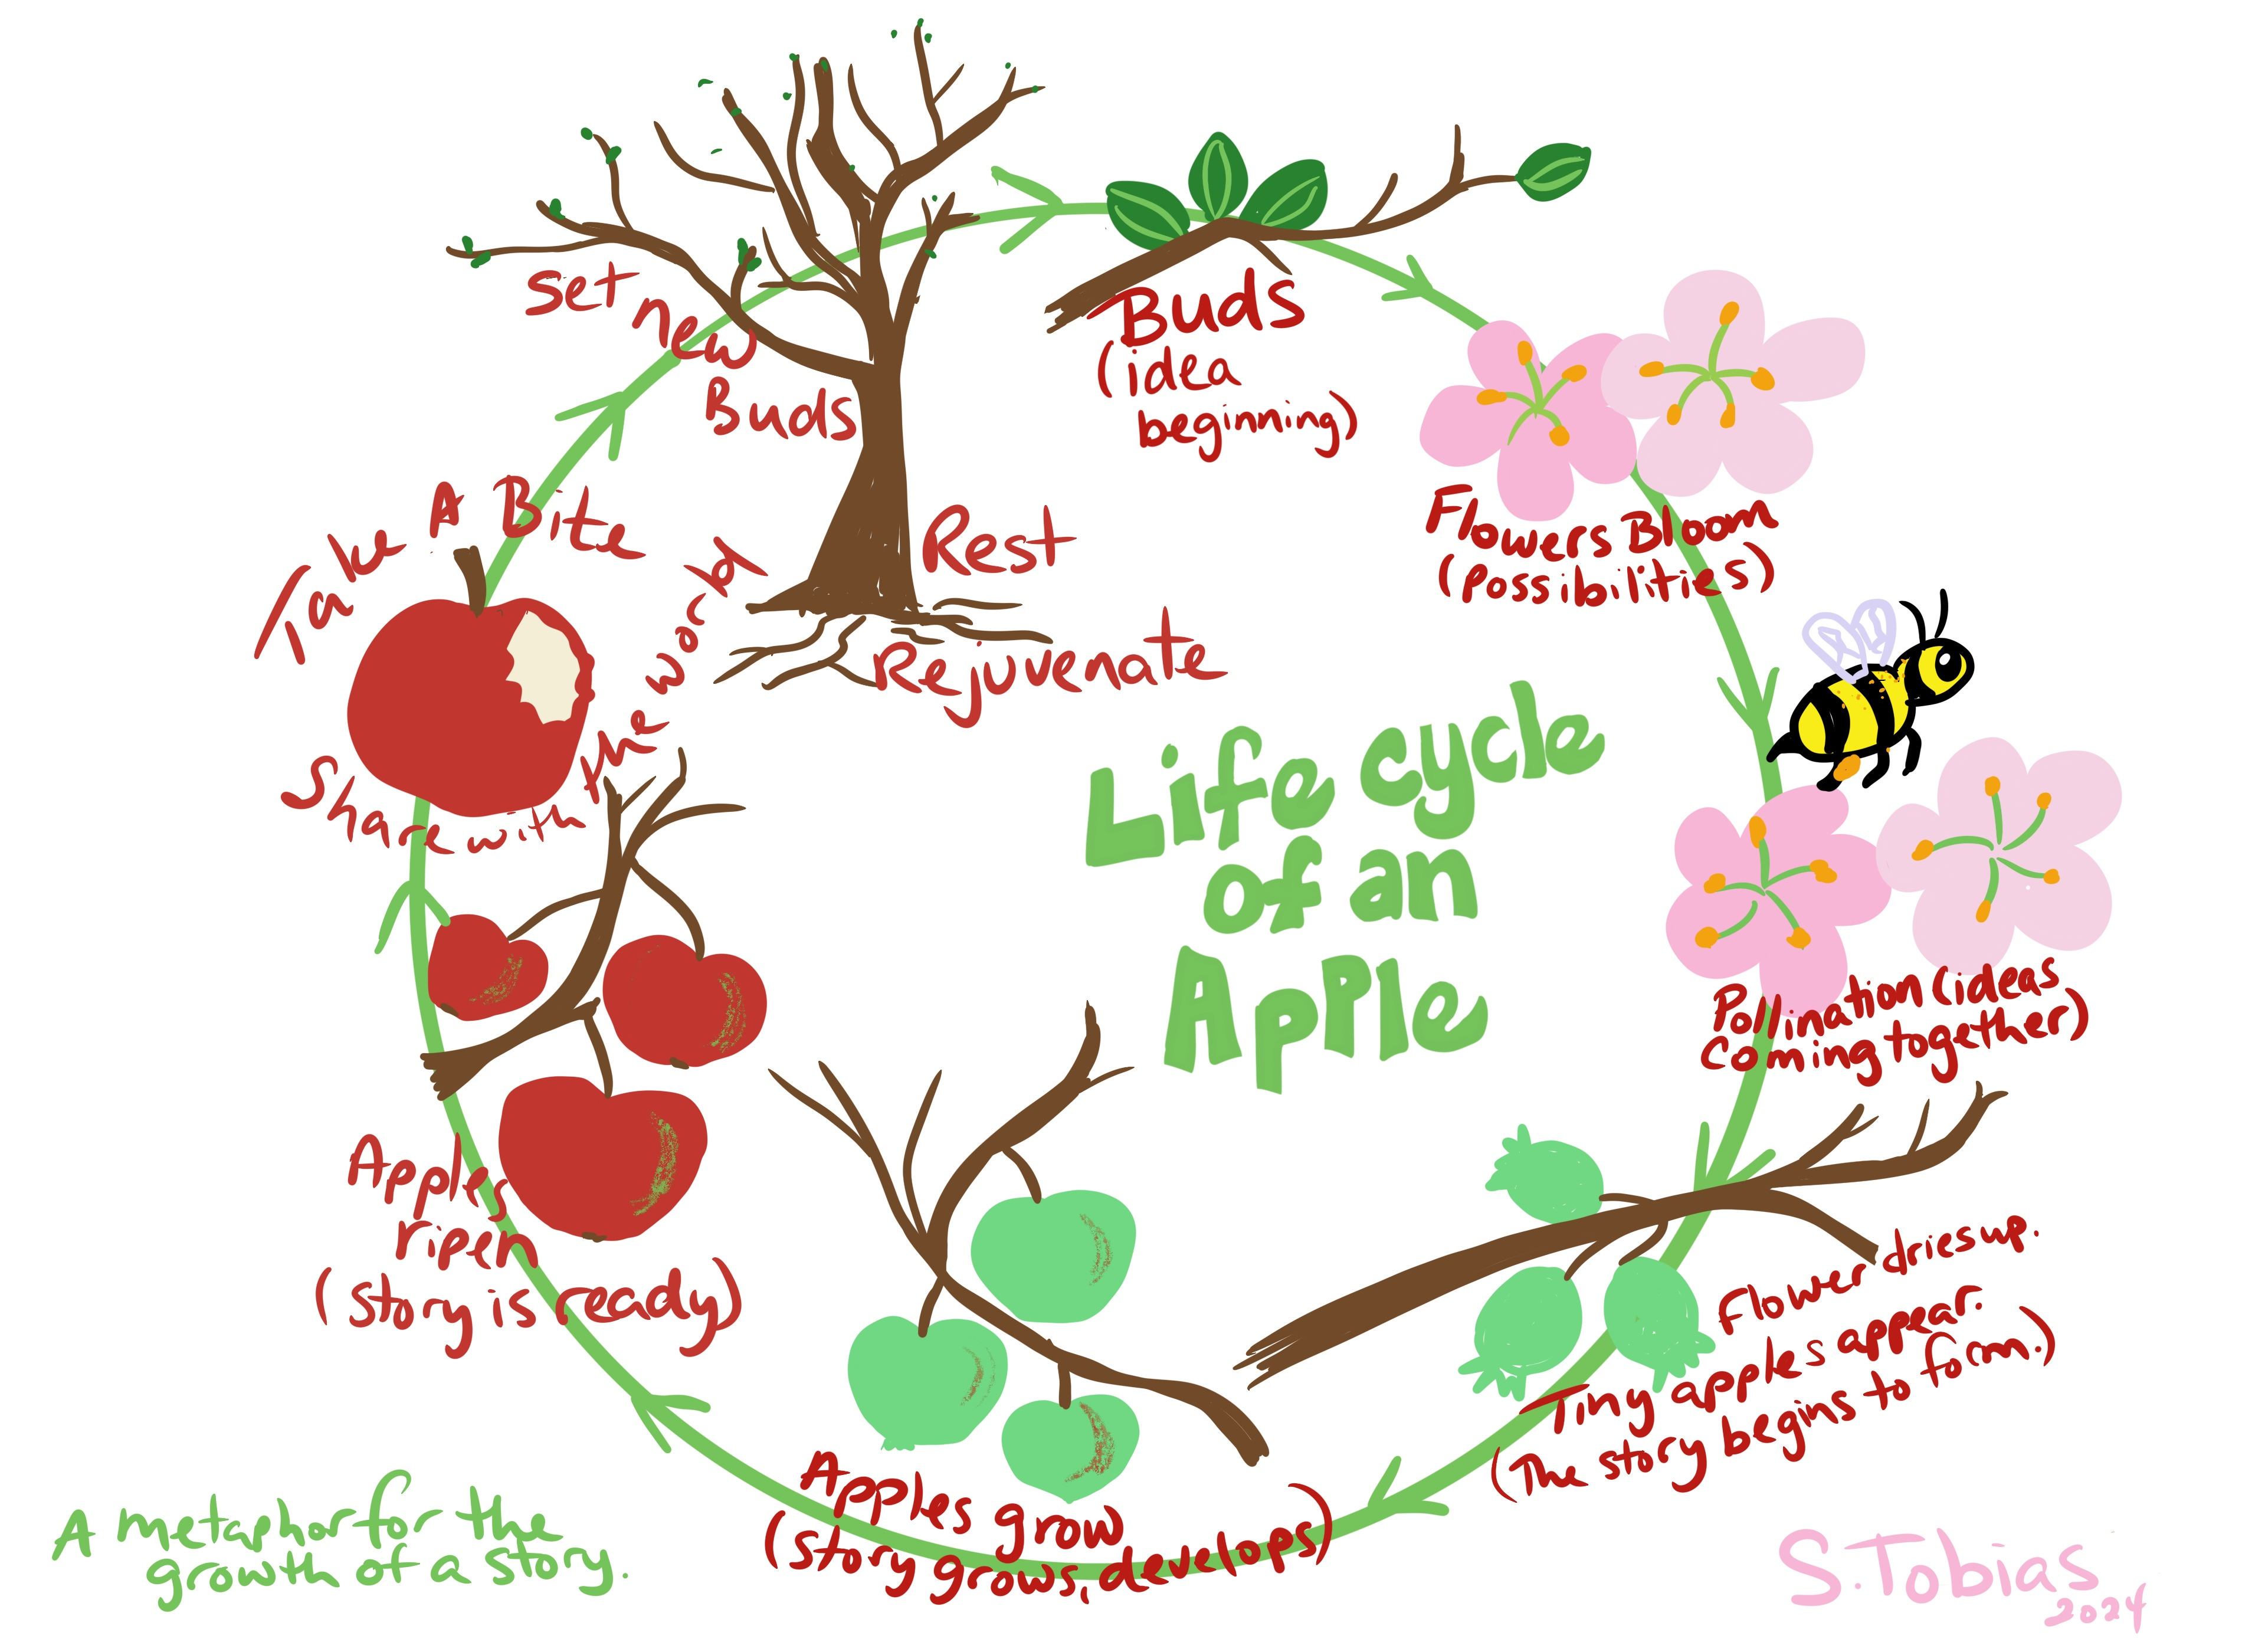 Life cycle
of an
Apple
Buds
(idea
beginning)
Flowers Bloom
(possibilities)
Pollination (ideas
coming together)
Flower dries up.
Tiny apples appear.
(The story begins to form.)
Apples grow
(Story grows, develops)
Apples
ripen
(Story is ready)
Take A Bite
Share with the world
Set new
Buds
Rest
Rejuvenate
A metaphor for the
growth of a story.
S. Tobias
2024